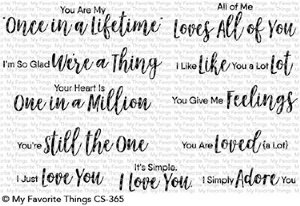 You Are My
"Once in a Lifetime"
All of Me
Loves All of You
I'm So Glad We're a Thing
I Like Like You a Lot Lot
Your Heart Is
One in a Million
You Give Me Feelings
You're still the One
You Are Loved (a Lot)
I Just Love You
It's Simple,
I Love You.
I Simply Adore You
© My Favorite Things CS-365